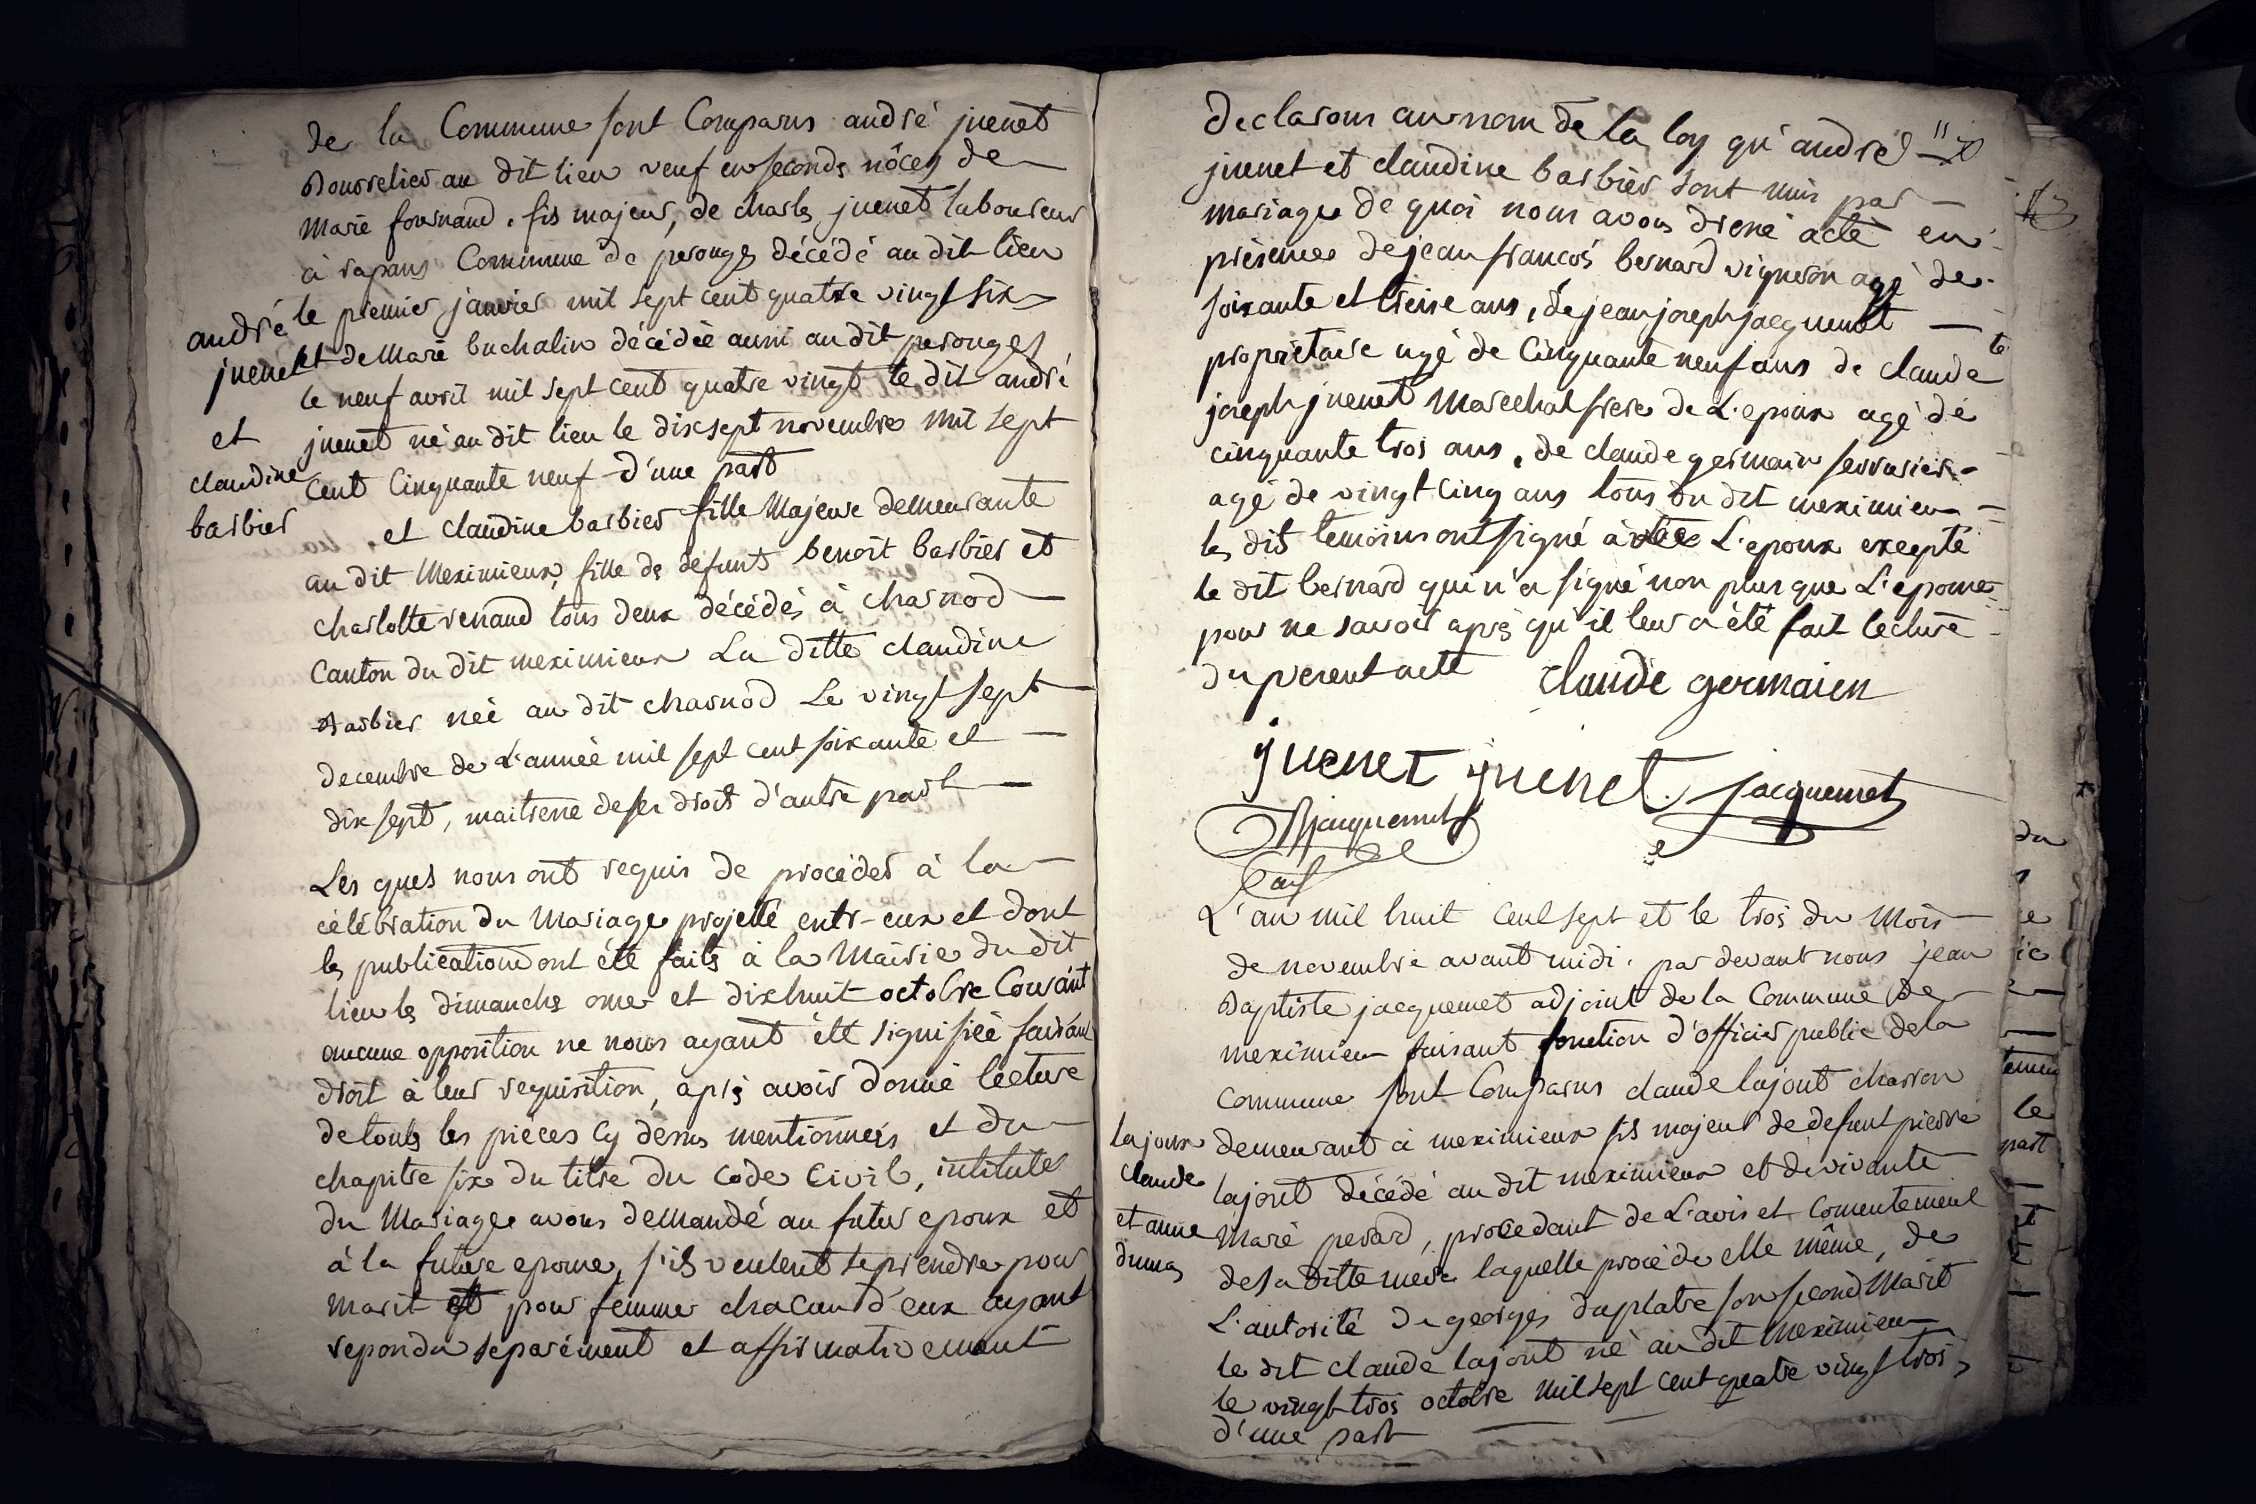 de la Commune sont Comparus andré juenet
Bourrelier au dit lieu veuf en seconds nôces de
Marie fournand. fis majeur, de charles juenet laboureur
à rapans Commune de perouges décédé au dit lieu
le premier janvier mil sept cent quatre vingt six
et de Marie buchalin décédée aussi au dit perouges
le neuf avril mil sept cent quatre vingt le dit andré
juenet né au dit lieu le dix sept novembre mil sept
cent Cinquante neuf d'une part
andré
juenet
et
claudine
barbier
et claudine barbier fille Majeure demeurante
au dit Meximieux, fille de défunts benoit barbier et
charlotte renaud tous deux décédés à charnod
Canton du dit meximieux La ditte claudine
Barbier née au dit charnod Le vingt sept
decembre de L'année mil sept cent soixante et
dix sept, maitresse de ses droits d'autre part
Les quels nous ont requis de procéder à la
célébration du Mariage projetté entr-eux et dont
les publications ont été faites à la Mairie du dit
lieu les dimanches onze et dix huit octobre Courant
aucune opposition ne nous ayant été signifiée faisant
droit à leur requisition, après avoir donné lecture
de touts les pieces Cy dessus mentionnées et du
chapitre six du titre du Code Civil, intitulé
du Mariage avons demandé au futur epoux et
à la future epouse, s'ils veulent se prendre pour
Marit et pour femme chacun d'eux ayant
repondu separément et affirmativement
declarons au nom de la loy qu'andré
juenet et claudine barbier sont unis par
mariage de quoi nous avons dressé acte en
présence de jean francois bernard vigneron agé de
soixante et treise ans, de jean joseph jacquemet
proprietaire agé de Cinquante neuf ans de claude
joseph juenet Marechal frere de L'epoux agé de
cinquante trois ans, de claude germain serrurier
agé de vingt cinq ans tous du dit meximieux
les dits temoins ont signé avec L'epoux excepté
le dit bernard qui n'a signé non plus que L'epouse
pour ne savoir après qu'il leur a été fait lecture
du present acte claude germaien
juenet juenet. jacquemet
Bjacquemet
adj
L'an mil huit cent sept et le trois du Mois
de novembre avant midi. par devant nous jean
Baptiste jacquemet adjoint de la Commune de
meximieux faisant fonction d'officier public de la
commune sont Comparus claude lajont charron
demeurant à meximieux fils majeur de defunt pierre
lajont décédé au dit meximieux et de vivante
Marie perard, procedant de L'avis et consentement
de sa ditte mere laquelle procéde elle même, de
L'autorité de georges duplatre son second Marit
le dit claude lajont né au dit Meximieux
le vingt trois octobre mil sept cent quatre vingt trois,
d'une part
lajoux
claude
et anne
dumas